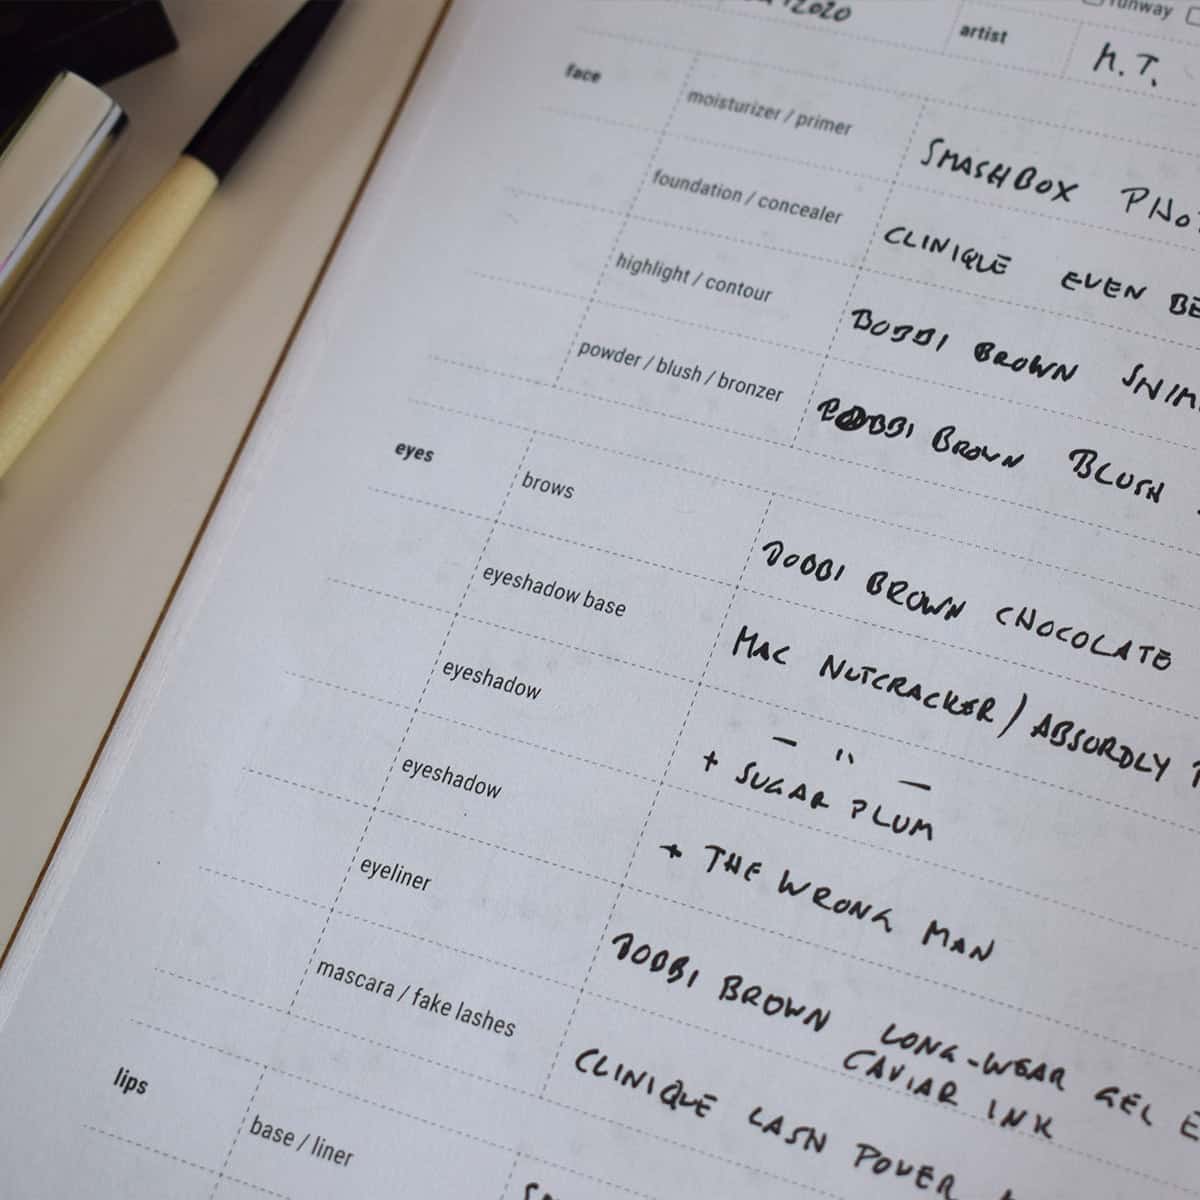 2020
runway
artist M.T.
face
moisturizer / primer SMASHBOX
foundation / concealer CLINIQUE EVEN
highlight / contour BOBBI BROWN
powder / blush / bronzer BOBBI BROWN BLUSH
eyes
brows BOBBI BROWN CHOCOLATE
eyeshadow base MAC NUTCRACKER / ABSURDLY
eyeshadow — " —
+ SUGAR PLUM
eyeshadow + THE WRONG MAN
eyeliner BOBBI BROWN LONG-WEAR GEL
CAVIAR INK
mascara / fake lashes CLINIQUE LASH POWER
lips
base / liner